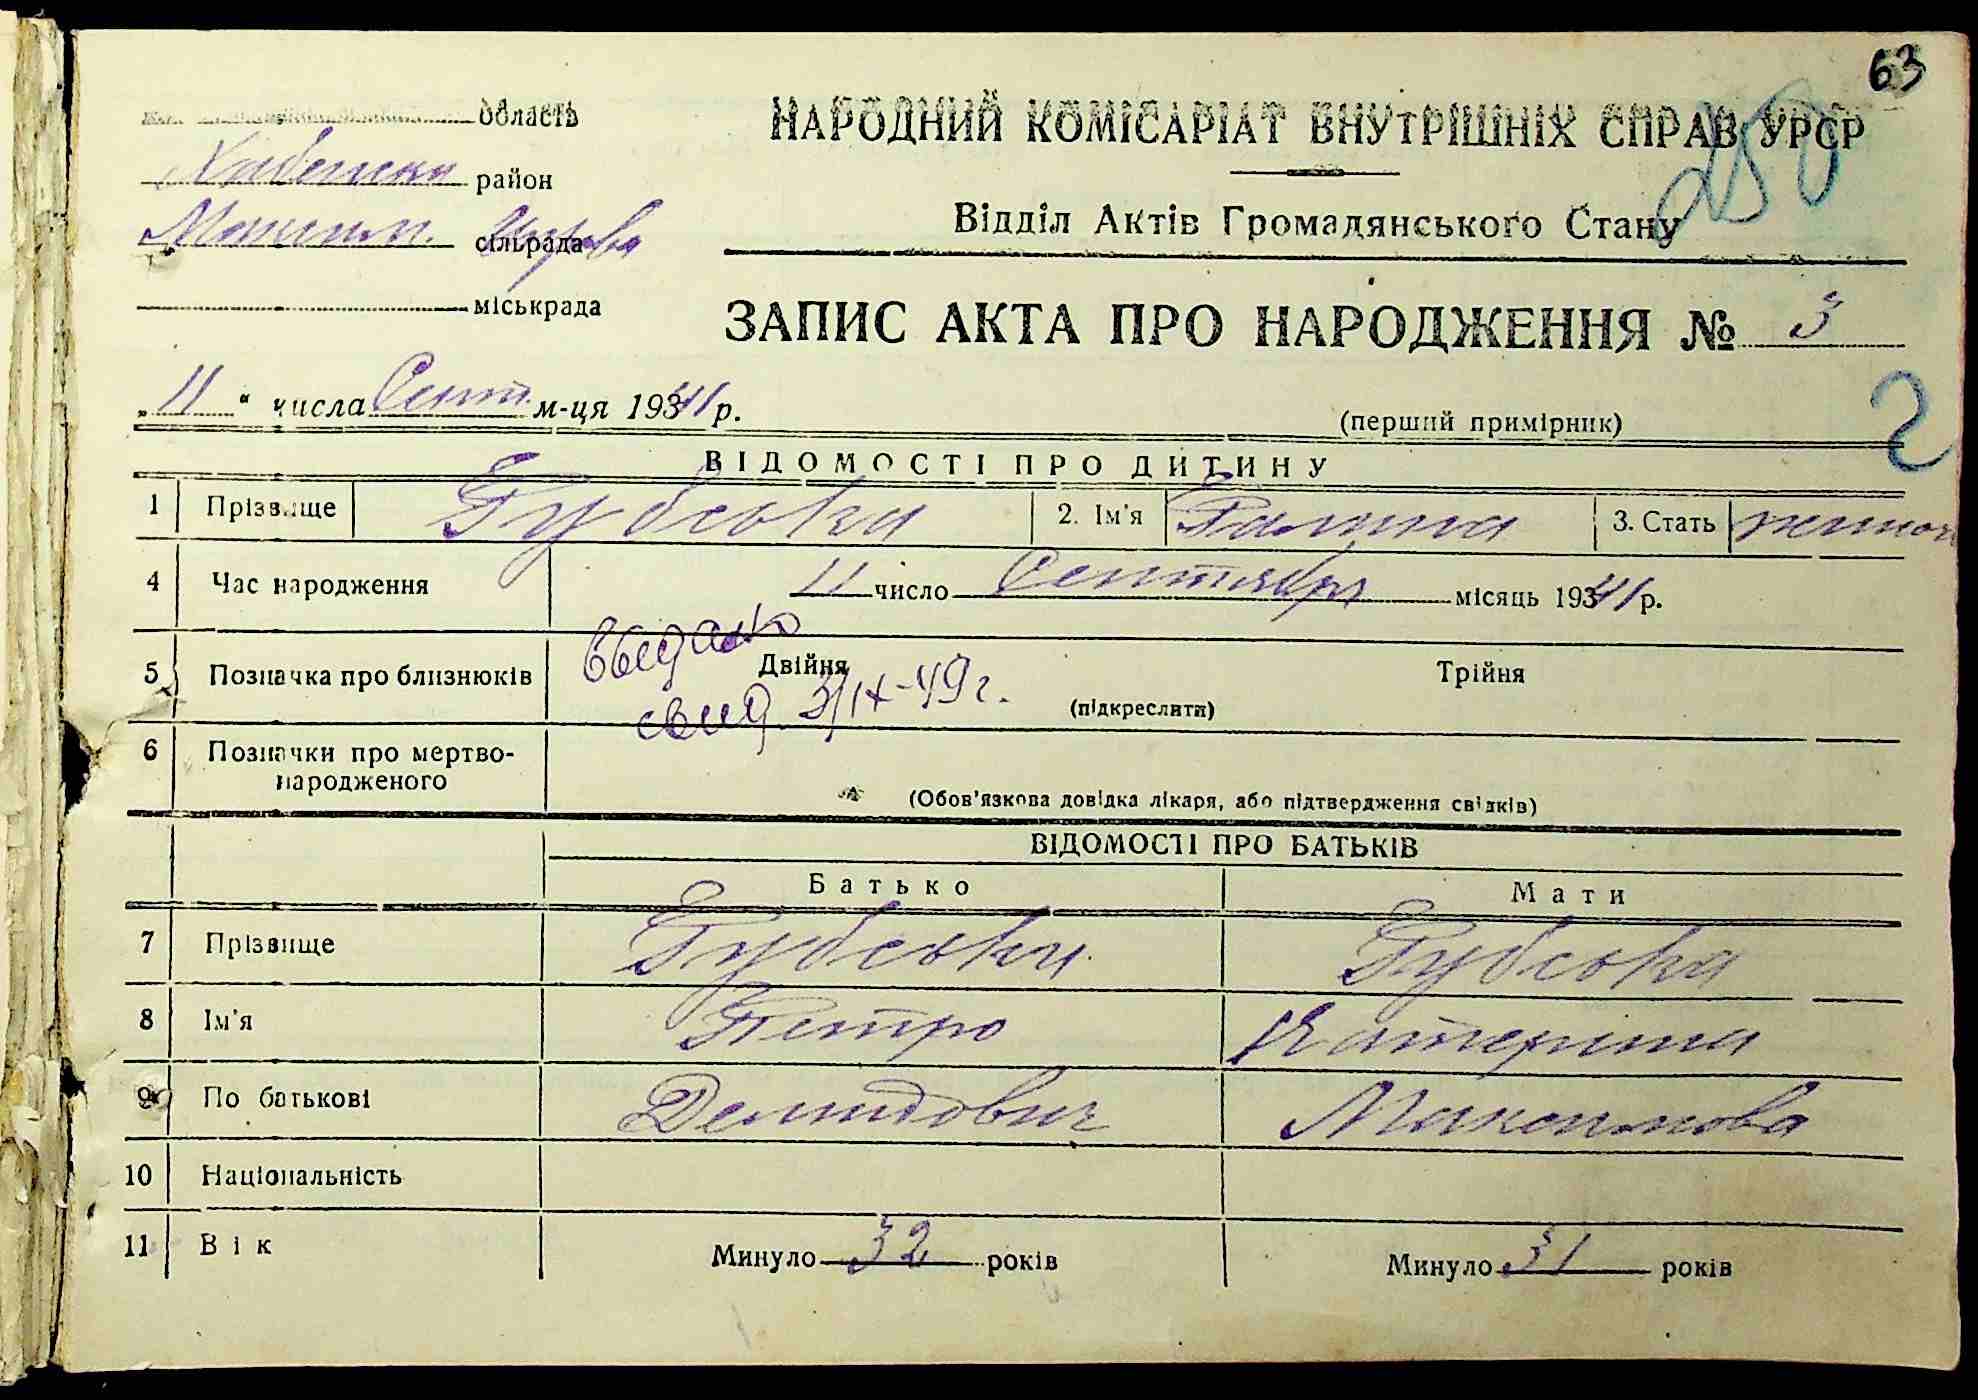 63
область
НАРОДНИЙ КОМІСАРІАТ ВНУТРІШНІХ СПРАВ УРСР
250
район
Відділ Актів Громадянського Стану
сільрада
міськрада
ЗАПИС АКТА ПРО НАРОДЖЕННЯ № 3
„11“ числа Сент. м-ця 1941 р.
(перший примірник)
2
ВІДОМОСТІ ПРО ДИТИНУ
1 Прізвище Губська 2. Ім'я Галина 3. Стать
4 Час народження 11 число Сентября місяць 1941 р.
выдано
5 Позначка про близнюків Двійня Трійня
свид 3/IX-49 г. (підкреслити)
6 Позначки про мертво-
народженого
(Обов'язкова довідка лікаря, або підтвердження свідків)
ВІДОМОСТІ ПРО БАТЬКІВ
Батько Мати
7 Прізвище Губська Губська
8 Ім'я Петро Катерина
9 По батькові Демидович Максимова
10 Національність
11 Вік Минуло 32 років Минуло 31 років